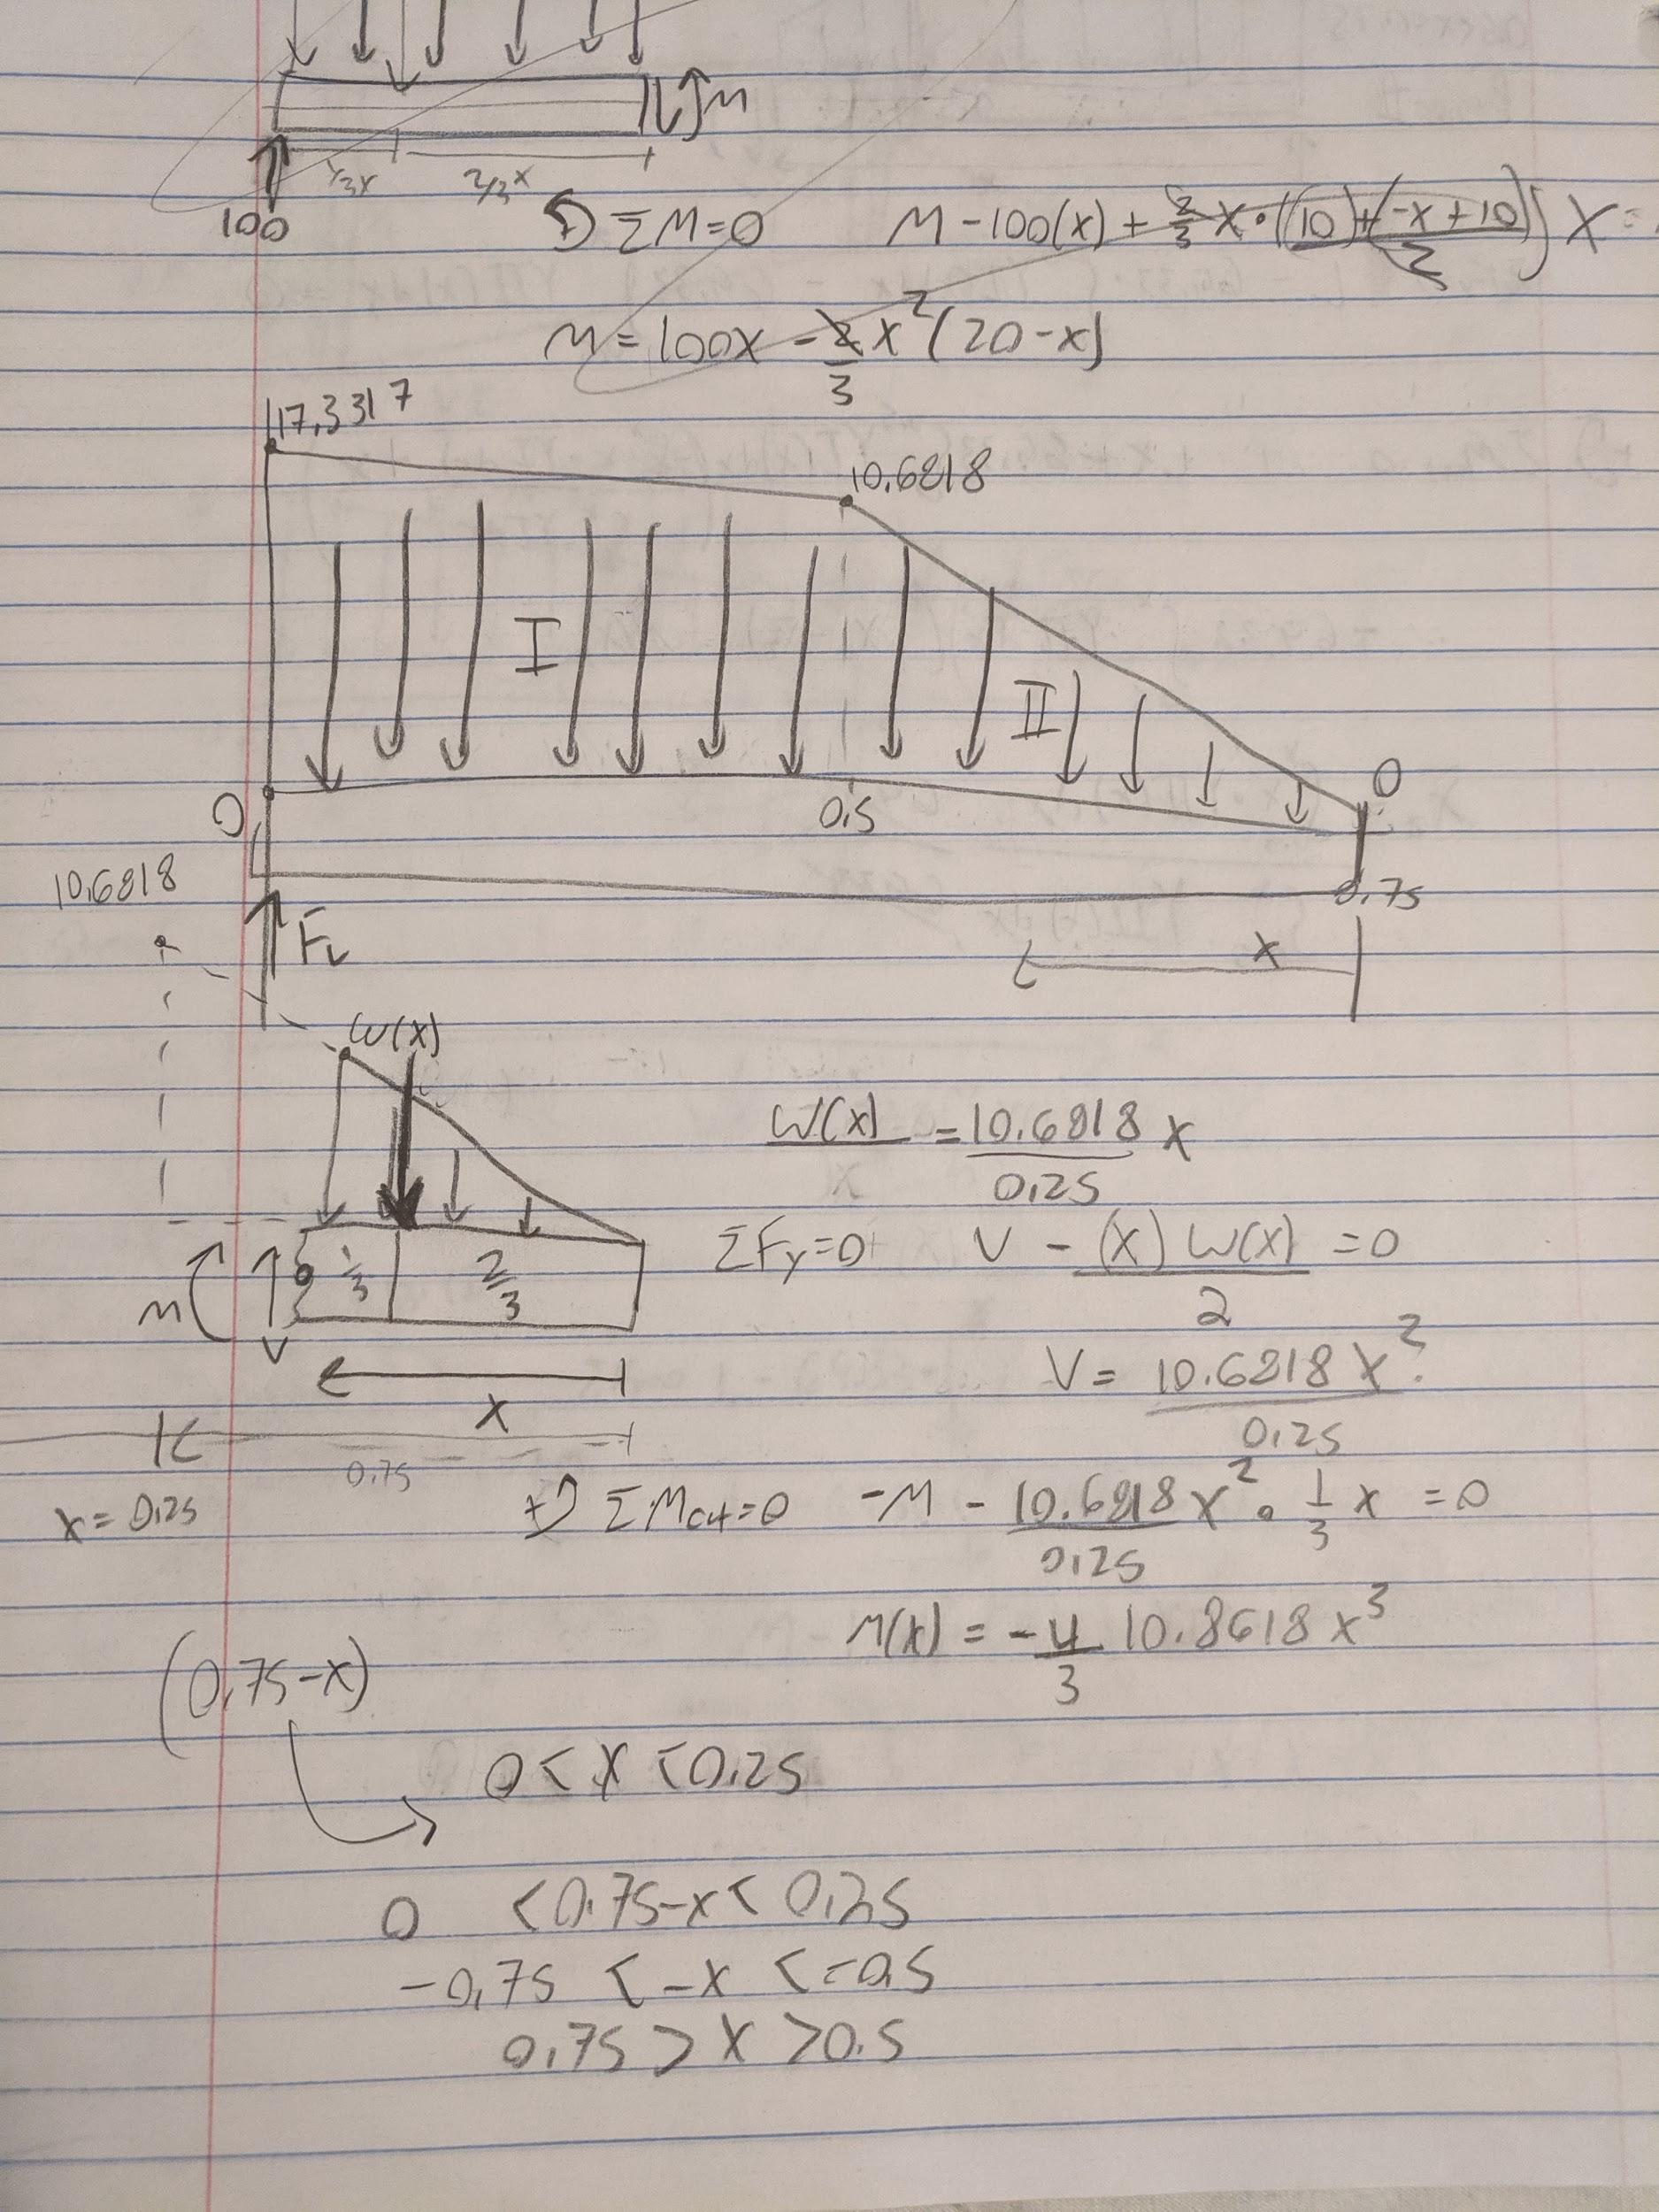 M
1/3x 2/3x
100
ΣM=0 M-100(x) + 2/3 x·((10)+(-x+10))/2) x =
M = 100x - 2/3 x²(20-x)
17.3317
10.6818
I
II
0
0.5
0
10.6818
0.75
FL
x
W(x)
W(x) = 10.6818/0.25 x
1/3 2/3
ΣFy=0 V - (x) W(x)/2 = 0
M
V
V = 10.6818 x²/0.25
x
0.75
x = 0.25
+ ΣMcut=0 -M - 10.6818/0.25 x² · 1/3 x = 0
M(x) = -4/3 10.8618 x³
(0.75-x)
0 < x < 0.25
0 < 0.75-x < 0.25
-0.75 < -x < -0.5
0.75 > x > 0.5